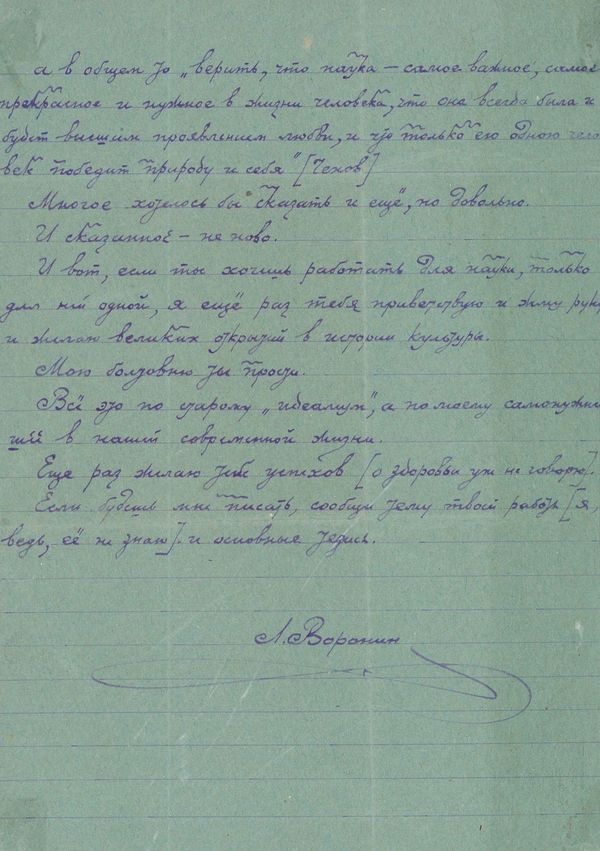 а в общем то „верить, что наука — самое важное, самое
прекрасное и нужное в жизни человека, что она всегда была и
будет высшим проявлением любви, и что только ею одною чело
век победит природу и себя" [Чехов]
Многое хотелось бы сказать и ещё, но довольно.
И сказанное – не ново.
И вот, если ты хочешь работать для науки, только
для неё одной, я ещё раз тебя приветствую и жму руку
и желаю великих открытий в истории культуры.
Мою болтовню ты прости.
Всё это по старому „идеализм", а по моему самонужней
шее в нашей современной жизни.
Еще раз желаю тебе успехов [о здоровьи уж не говорю].
Если будешь мне писать, сообщи тему твоей работы [я,
ведь, её не знаю] и основные тезисы.
Л. Воронин